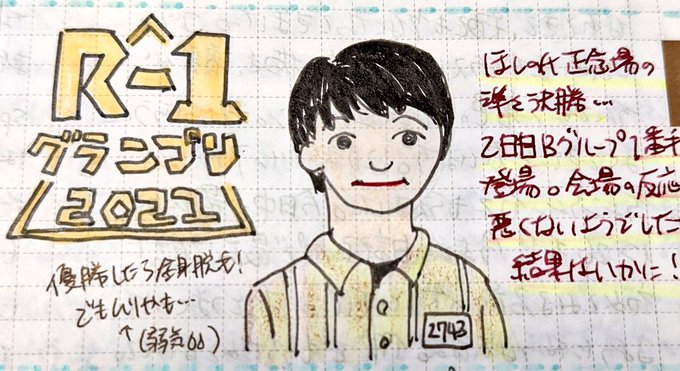 R-1
グランプリ
2021
優勝したら全身脱毛!
でもムリかも…
↑(弱気
2743
正念場の
準々決勝…
2日目Bグループ1番手
登場。会場の反応
悪くないようでした
結果はいかに!